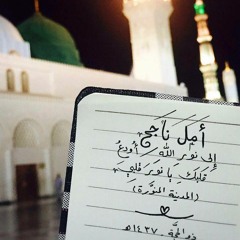 أمل ناجح
إلى نور الله أودع
قلبك يا نور قلبي
(المدينة المنورة)
ذو الحجة ١٤٣٧هـ